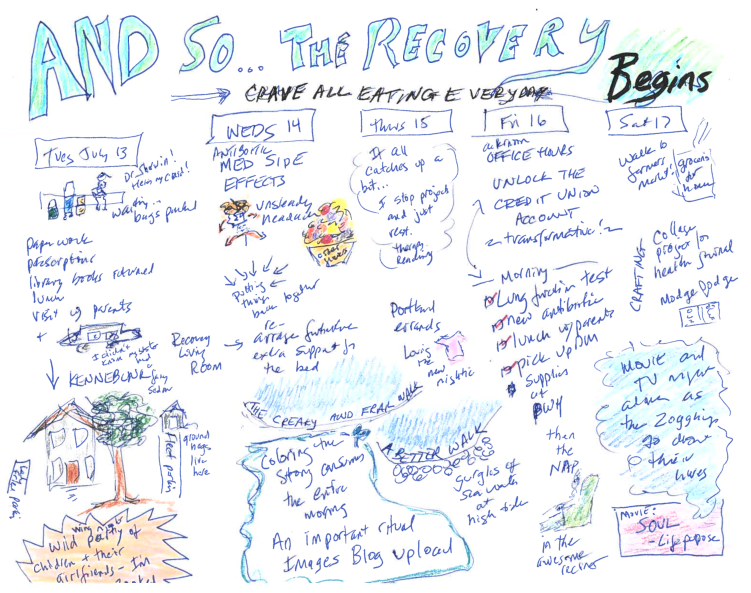 AND SO... THE RECOVERY
Begins
CRAVE ALL EATING EVERYDAY
Tues July 13
Dr. Sherwin!
waiting...
bags packed
paperwork
prescriptions
library books returned
lunch
visit w/ parents
+
I didn't
know my sister
had a
sedan
KENNEBUNK
ground
hogs
live
here
wing night
Wild party of
children + their
girlfriends - I'm
WEDS 14
ANTIBIOTIC
MED SIDE
EFFECTS
unsteady
headache
Putting
things
back together
Recovery
Living
Room
re-
arrange furniture
extra support for
the bed
THE CREAKY AND FRAIL WALK
Coloring the
story consumes
the entire
morning
An important ritual
Images Blog upload
thurs 15
It all
catches up a
bit...
I stop project
and just
rest.
therapy
Rendering
Portland
errands
Louis
the
new
nightie
A BETTER WALK
gurgles of
sea water
at
high tide
Fri 16
OFFICE HOURS
UNLOCK THE
CREDIT UNION
ACCOUNT
transformative!
Morning
Lung function test
new antibiotic
lunch w/ parents
pick up DM
supplies
at
BWH
then
the
NAP
in the
awesome
recliner
Sat 17
walk to
farmers
market!
groceries
for
mom
CRAFTING
Collage
project for
health journal
Modge Podge
MOVIE and
TV night
alone as
the Zogghins
go draw
their
lives
MOVIE:
SOUL
- Life purpose